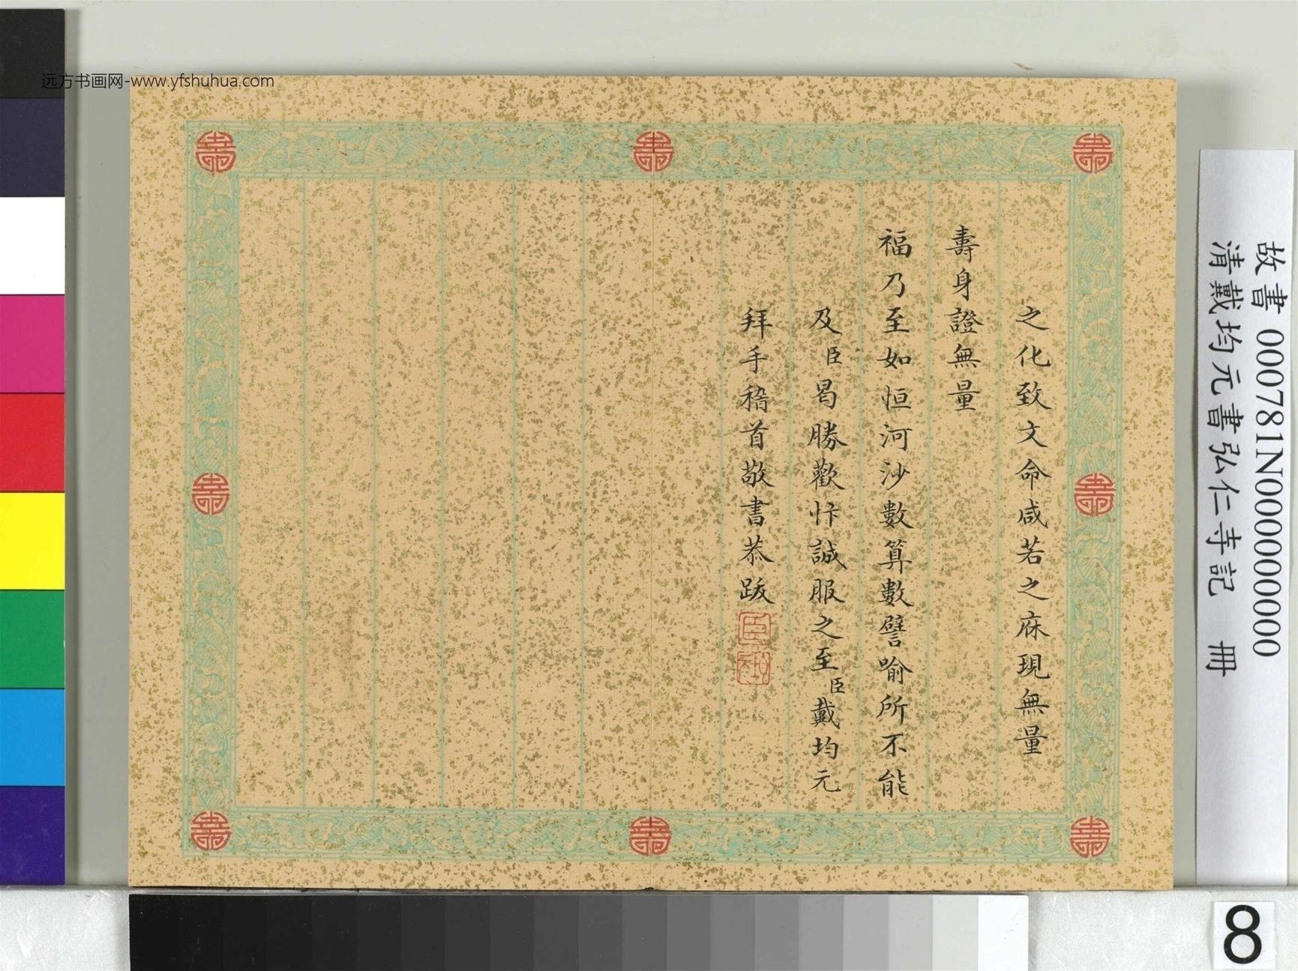 远方书画网-www.yfshuhua.com
故書 000781N000000000
清戴均元書弘仁寺記 冊
之化致文命咸若之庥現無量
壽身證無量
福乃至如恒河沙數算數譬喻所不能
及臣曷勝歡忭誠服之至臣戴均元
拜手稽首敬書恭跋
臣
8